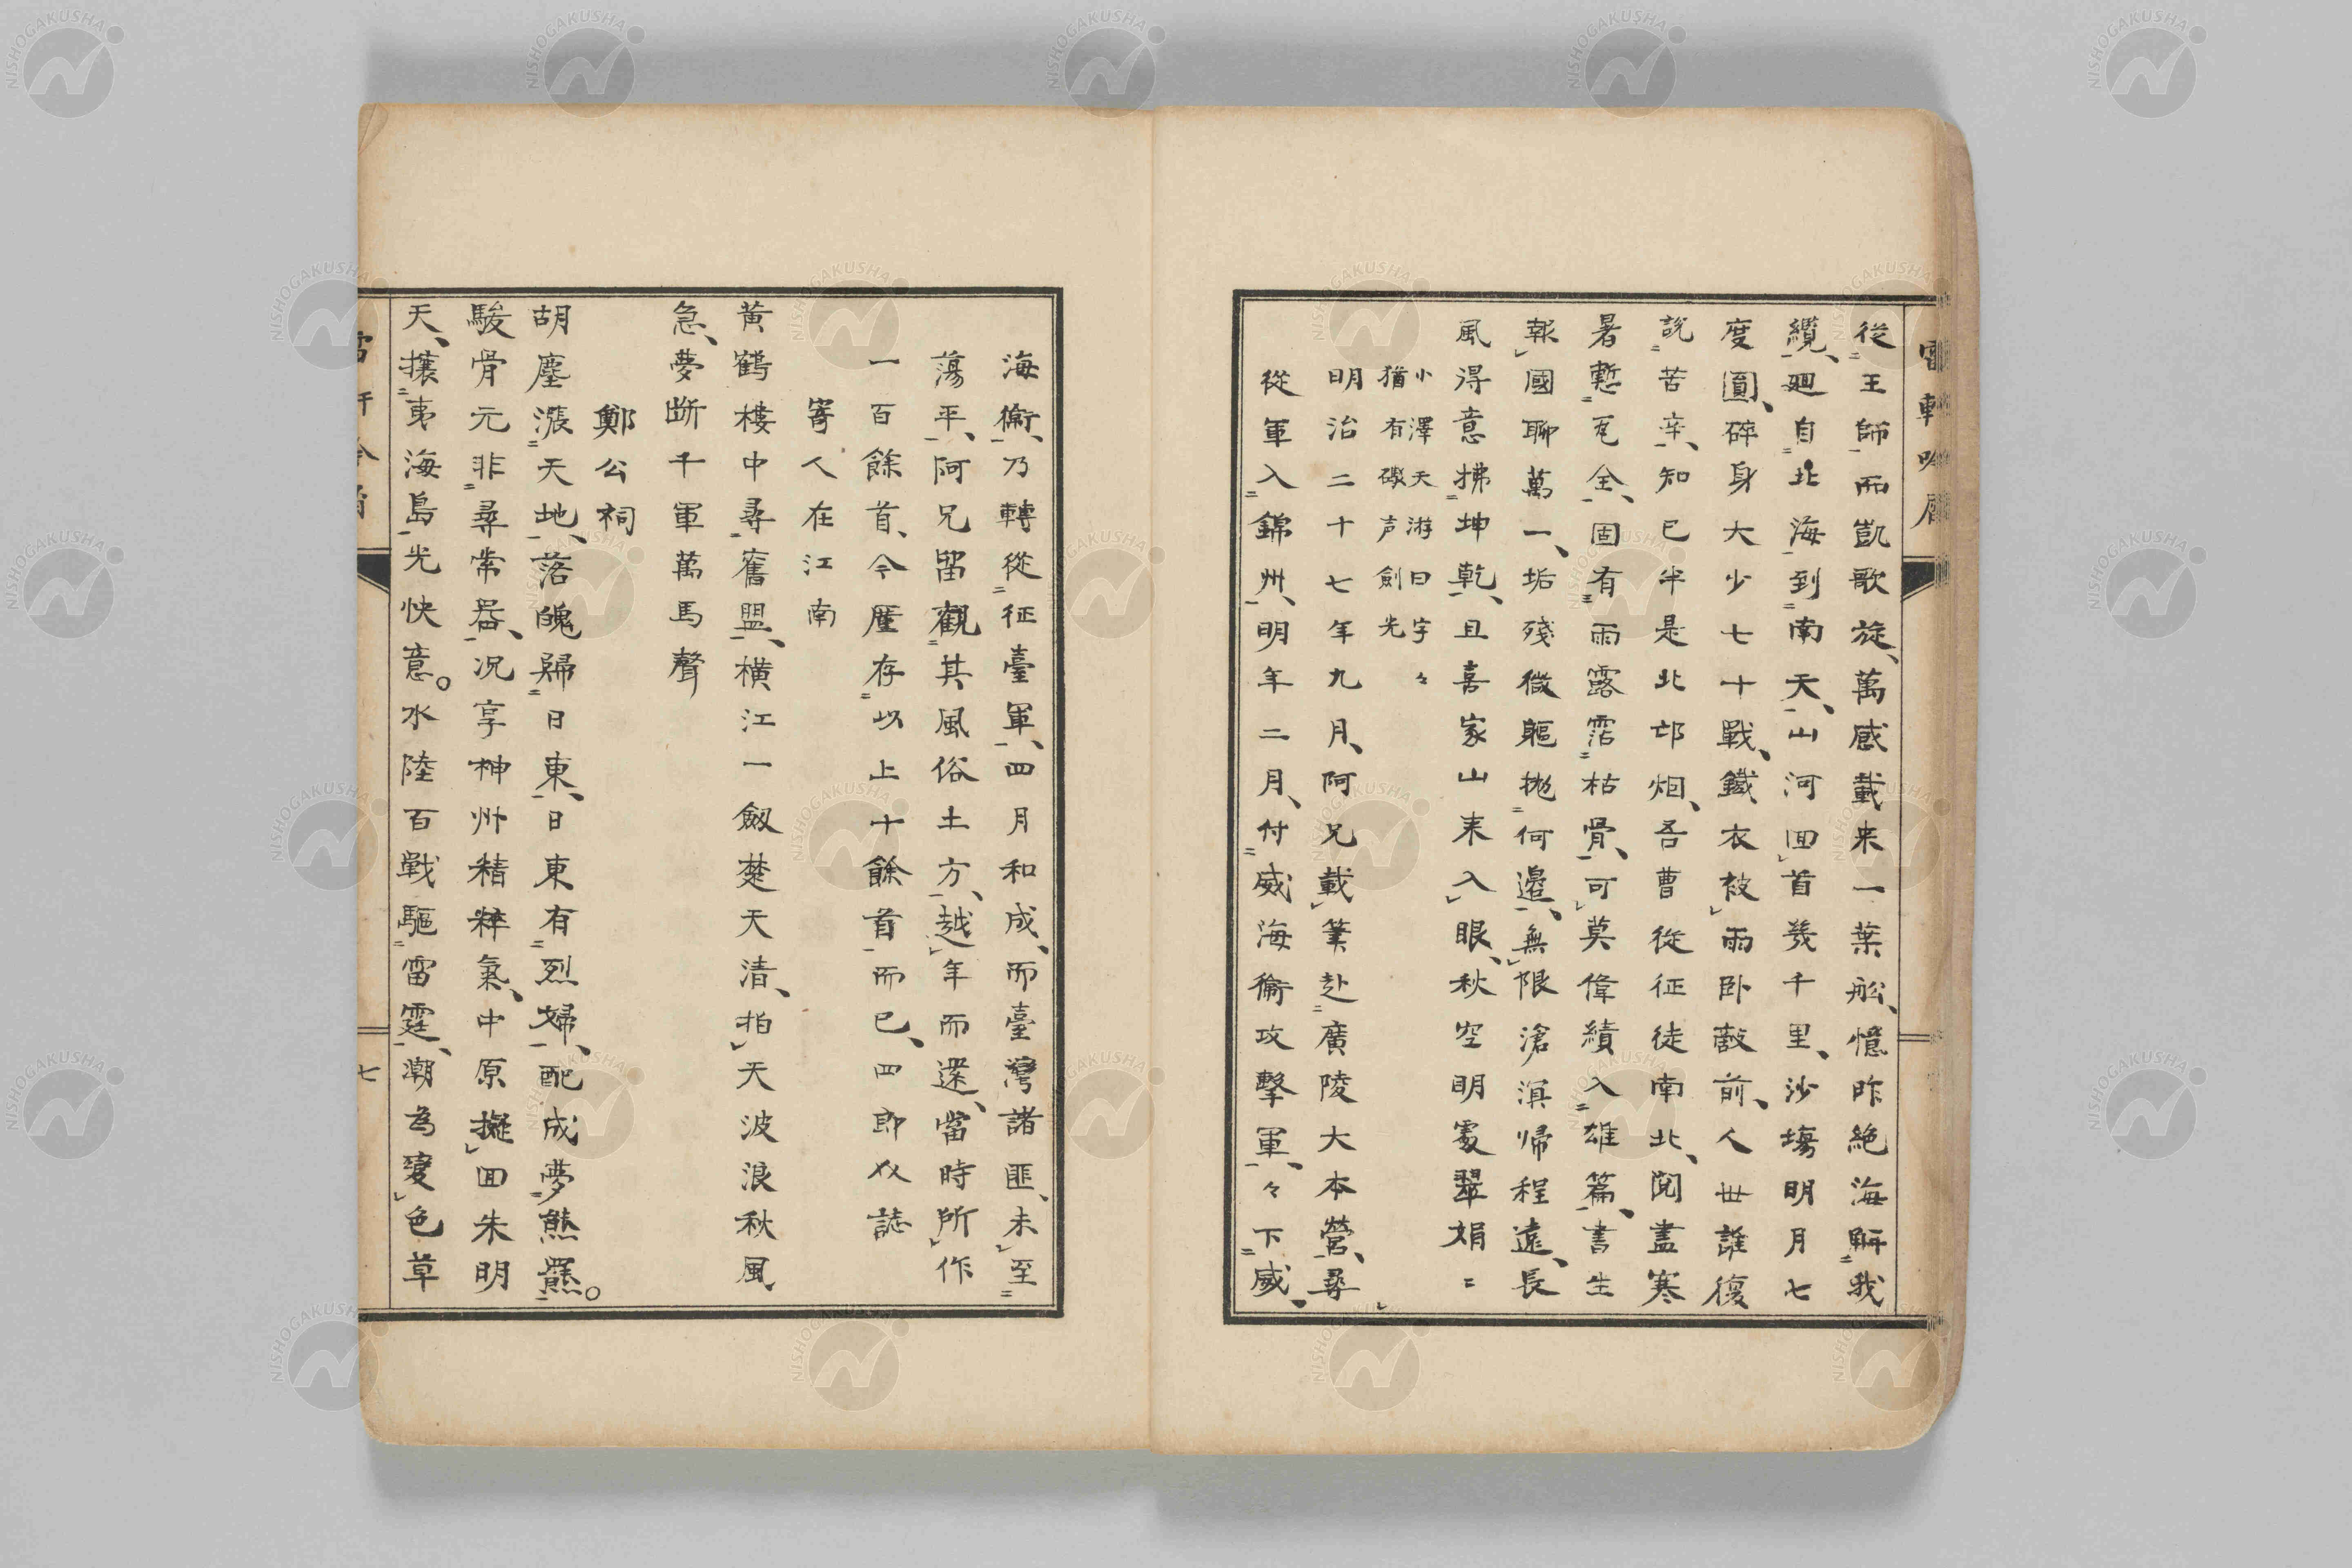 從王師而凱歌旋、萬感載来一葉舩、憶昨絶海解我
纜、廻自北海到南天、山河回首幾千里、沙塲明月七
度圓、碎身大少七十戰、鐵衣被雨卧敵前、人世誰復
説苦辛、知已半是北邙烟、吾曹從征徒南北、閲盡寒
暑慙瓦全、固有雨露霑枯骨、可莫偉績入雄篇、書生
報國聊萬一、垢殘微軀抛何邉、無限滄溟帰程遠、長
風得意拂坤乾、且喜家山来入眼、秋空明處翠娟〻
小澤天游曰字々
猶有礮声劍光
明治二十七年九月、阿兄載筆赴廣陵大本營、尋
從軍入錦州、明年二月、付威海衞攻擊軍、々下威、
海衞、乃轉從征臺軍、四月和成、而臺灣諸匪、未至
蕩平、阿兄留觀其風俗土方、越年而還、當時所作
一百餘首、今厪存以上十餘首而已、四郎仌誌
寄人在江南
黄鶴樓中尋舊盟、横江一劔楚天清、拍天波浪秋風
急、夢断千軍萬馬聲
鄭公祠
胡塵漲天地、落魄歸日東、日東有烈婦、配成夢熊羆。
駿骨元非尋常器、况享神州精粹氣、中原擬回朱明
天、攘夷海島光快意。水陸百戰驅雷霆、潮為變色草
七